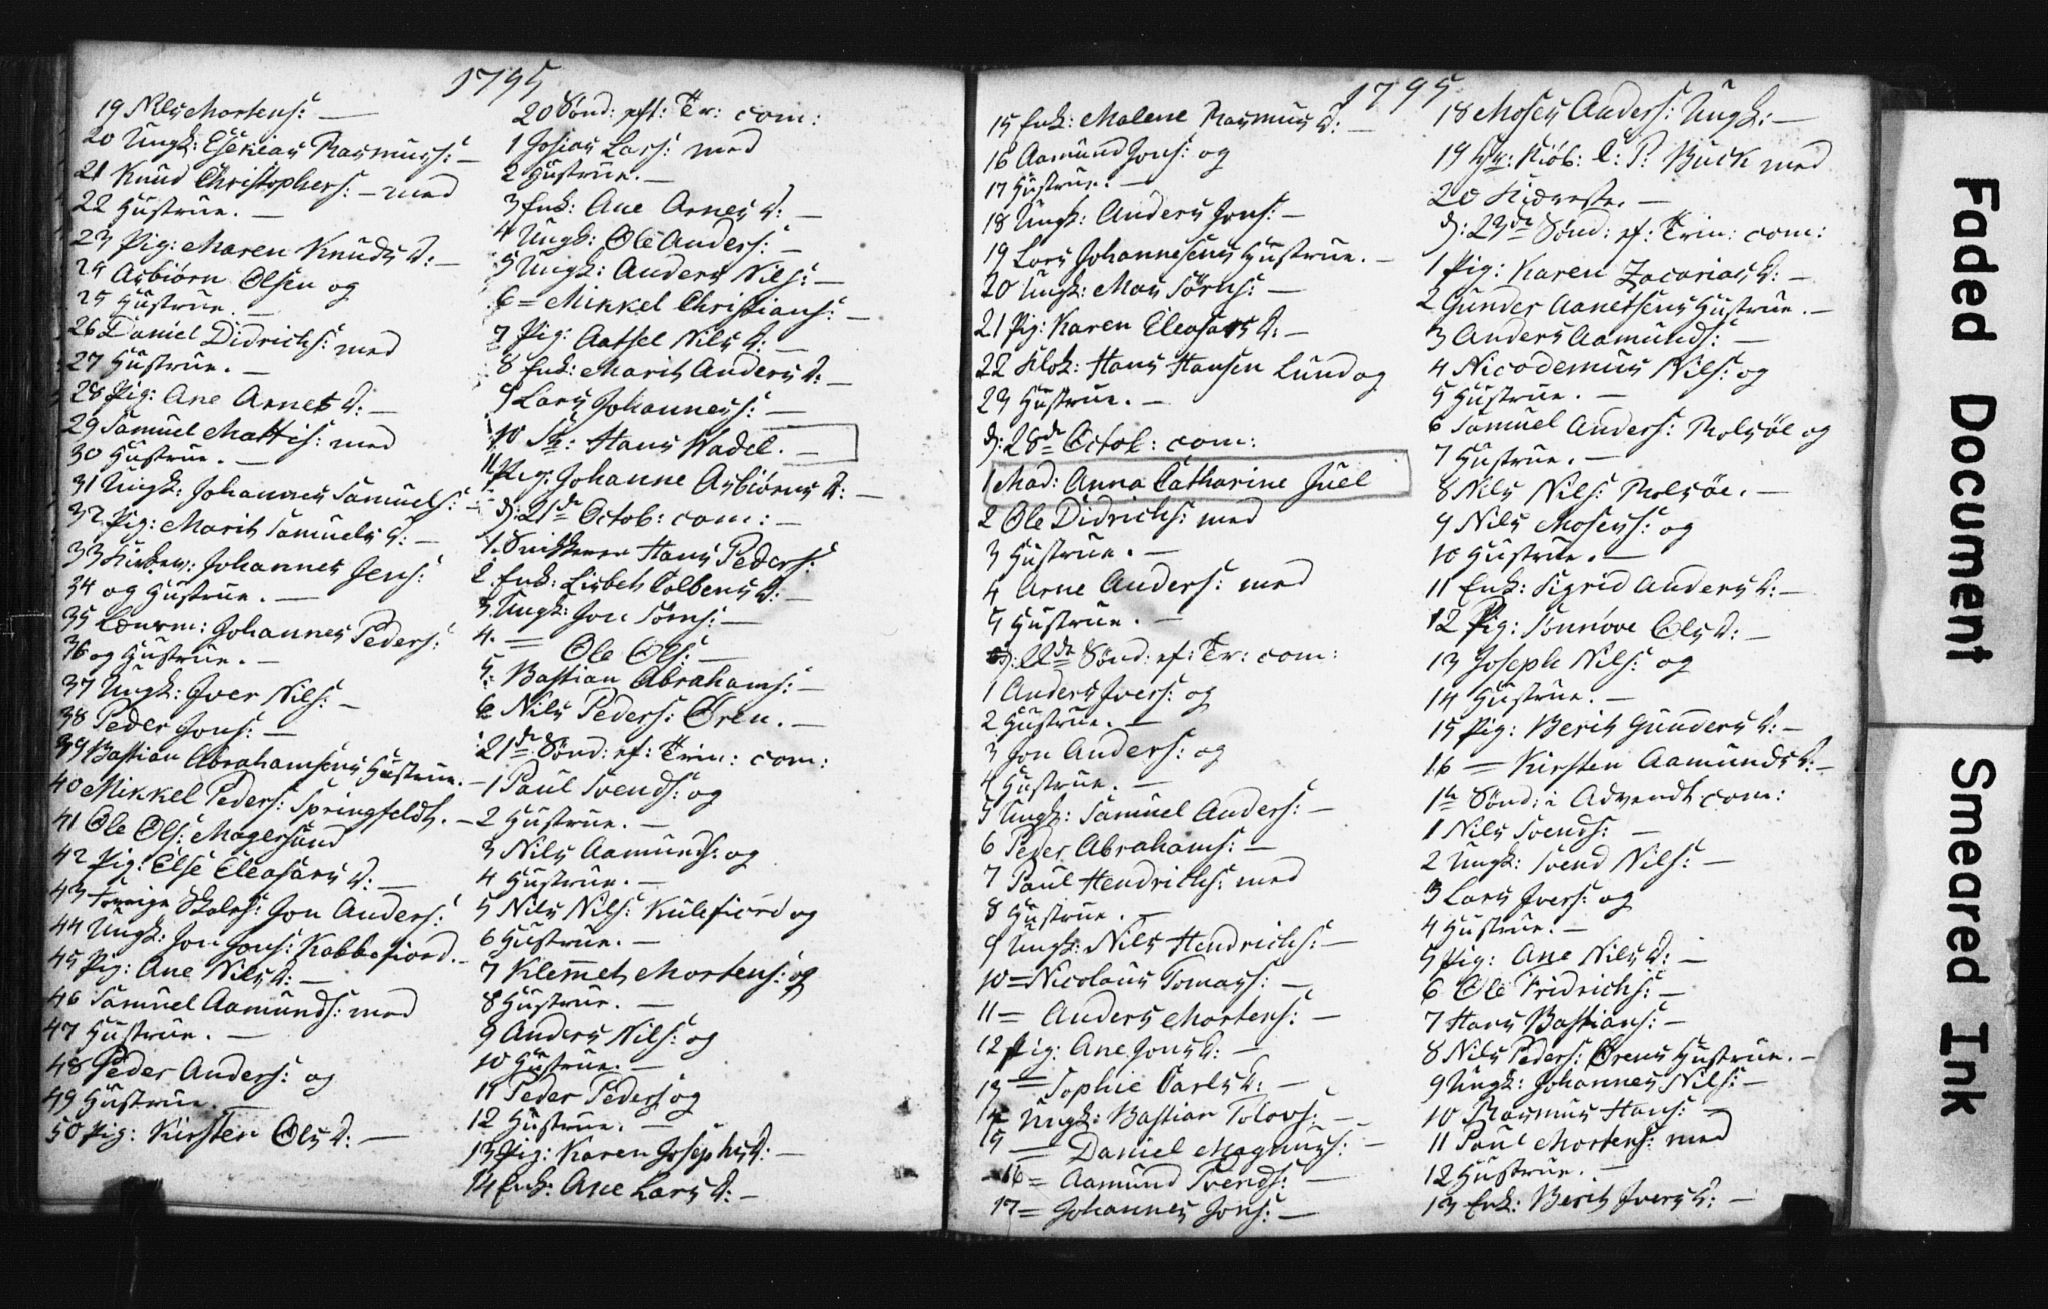 1795
19 Nils Mortens: —
20 Ungk: Esekias Rasmuss: —
21 Knud Christophers: — med
22 Hustrue. —
23 Pig: Maren Knuds D: —
24 Asbiørn Olsen og
25 Hustrue. —
26 Daniel Didrichs: med
27 Hustrue. —
28 Pig: Ane Arnes D: —
29 Samuel Mattis: med
30 Hustrue. —
31 Ungk: Johannes Samuels: —
32 Pig: Marit Samuels D: —
33 Kirkev: Johannes Jens:
34 og Hustrue. —
35 Johannes Peders:
36 og Hustrue. —
37 Ungk: Iver Nils: —
38 Peder Jons: —
39 Bastian Abrahamsens Hustrue. —
40 Mikkel Peders: Springfeldt. —
41 Ole Ols: Magersund
42 Pig: Else Eleasars D: —
43 Jon Anders:
44 Ungk: Jon Jons: Kobbefiord. —
45 Pig: Ane Nils D: —
46 Samuel Aamunds: med
47 Hustrue. —
48 Peder Anders: og
49 Hustrue. —
50 Pig: Kirsten Ols D: —
20 Sønd: eft: Tr: com:
1 Josias Lars: med
2 Hustrue. —
3 Enk: Ane Arnes D: —
4 Ungk: Ole Anders: —
5 Ungk: Anders Nils: —
6 = Mikkel Christians: —
7 Pig: Aatsel Nils D: —
8 Enk: Marit Anders D: —
9 Lars Johanness: —
10 Sr: Hans Wadel. —
11 Pig: Johanne Asbiørns D: —
d: 21de Octob: com: —
1. Snikkeren Hans Peders:
2. Enk: Lisbet Colbens D: —
3. Ungk: Jon Søms: —
4. = Ole Ols: —
5: Bastian Abrahams: —
6 Nils Peders: Øren. —
21de Sønd: ef: Trin: com:
1 Paul Svends: og
2 Hustrue. —
3 Nils Aamunds: og
4 Hustrue. —
5 Nils Nils: Kulefiord og
6 Hustrue. —
7 Klemmet Mortens: og
8 Hustrue. —
9 Anders Nils: og
10 Hustrue. —
11 Peder Peders: og
12 Hustrue. —
13 Pig: Karen Josephs D: —
14 Enk: Ane Lars D: —
1795
15 Enk: Malene Rasmus D: —
16 Aamund Jons: og
17 Hustrue. —
18 Ungk: Anders Jons: —
19 Lars Johannesens Hustrue. —
20 Ungk: Mas Sørns: —
21 Pig: Karen Eleasars D: —
22 Klok: Hans Hansen Lund og
23 Hustrue. —
d: 28de Octob: com:
1 Mad: Anna Catharine Juel
2 Ole Didrichs: med
3 Hustrue. —
4 Arne Anders: med
5 Hustrue. —
d: 22de Sønd: ef: Tr: com:
1 Anders Ivers: og
2 Hustrue. —
3 Jon Anders: og
4 Hustrue. —
5 Ungk: Samuel Anders: —
6 Peder Abrahams: —
7 Paul Hendrichs: med
8 Hustrue. —
9 Ungk: Nils Hendrichs: —
10 = Nicolaus Tomass: —
11 = Anders Mortens: —
12 Pig: Ane Jons D: —
13 = Sophie Carls D: —
14 Ungk: Bastian Tolovs: —
15 = Daniel Magnuss: —
16 = Aamund Svends: —
17 = Johannes Jons: —
18 Moses Anders: Ungk: —
19 Hr: Kiøb: C: P: Buck med
20 Kiereste. —
d: 23de Sønd: ef: Trin: com:
1 Pig: Karen Zacarias D: —
2 Gunder Aanetsens Hustrue. —
3 Anders Aamunds: —
4 Nicodemus Nils: og
5 Hustrue. —
6 Samuel Anders: Rolsøe og
7 Hustrue. —
8 Nils Nils: Rolsøe. —
9 Nils Moses: og
10 Hustrue. —
11 Enk: Sigrid Anders D: —
12 Pig: Sønnøve Ols D: —
13 Joseph Nils: og
14 Hustrue. —
15 Pig: Berit Gunders D: —
16 = Kirsten Aamunds D: —
1te Sønd: i Advendt com:
1 Nils Svends: —
2 Ungk: Svend Nils: —
3 Lars Ivers: og
4 Hustrue: —
5 Pig: Ane Nils D: —
6 Ole Fridrichs: —
7 Hans Bastians: —
8 Nils Peders: Ørens Hustrue. —
9 Ungk: Johannes Nils: —
10 Rasmus Hans: —
11 Paul Mortens: med
12 Hustrue. —
13 Enk: Berit Ivers D: —
Faded Document
Smeared Ink